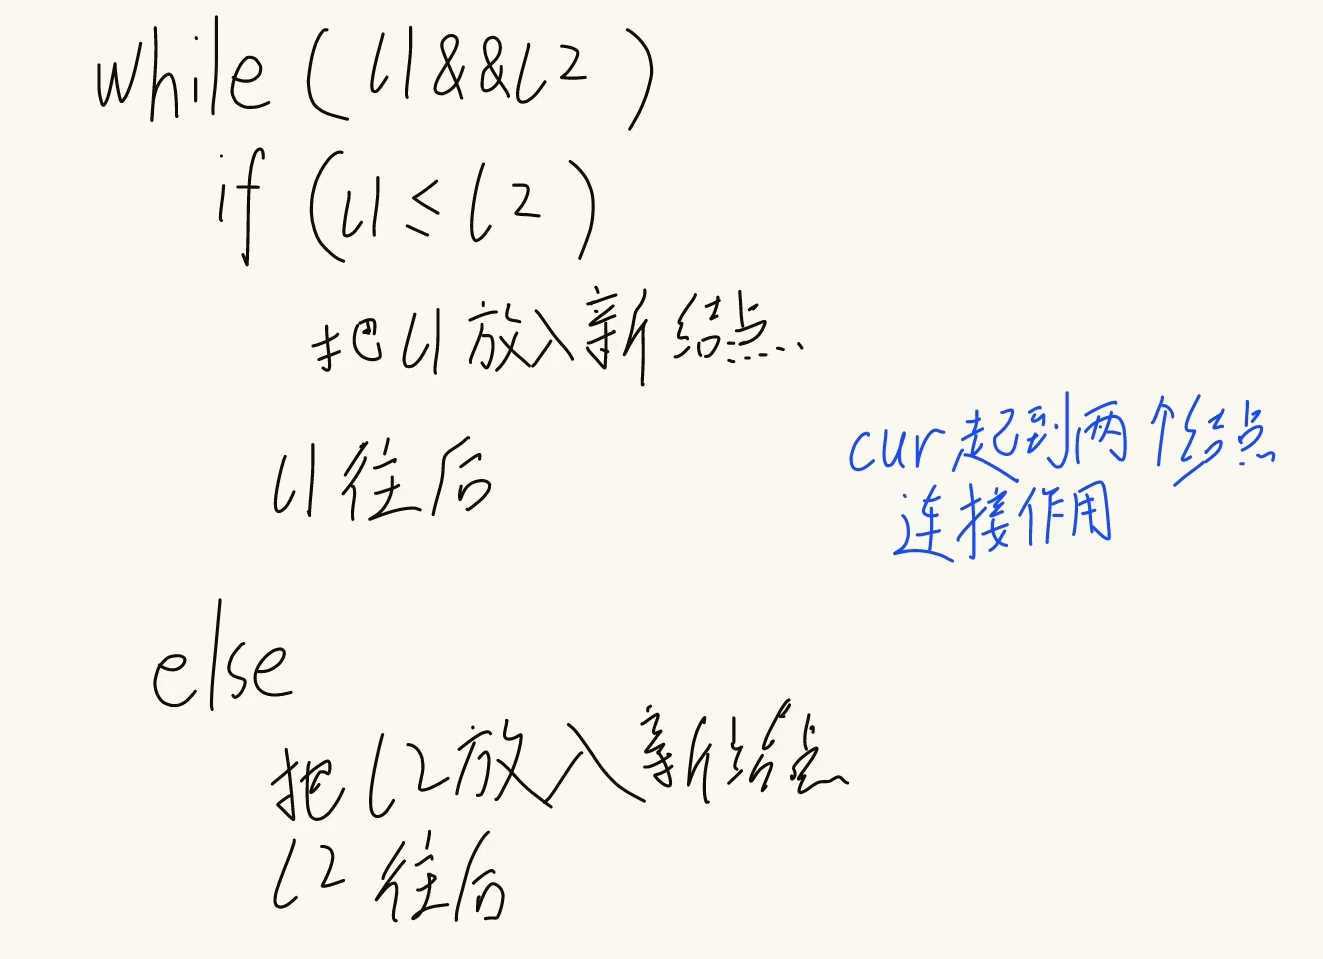 while (l1&&l2)
if (l1≤l2)
把l1放入新结点.
l1往后
cur起到两个结点
连接作用
else
把l2放入新结点
l2往后